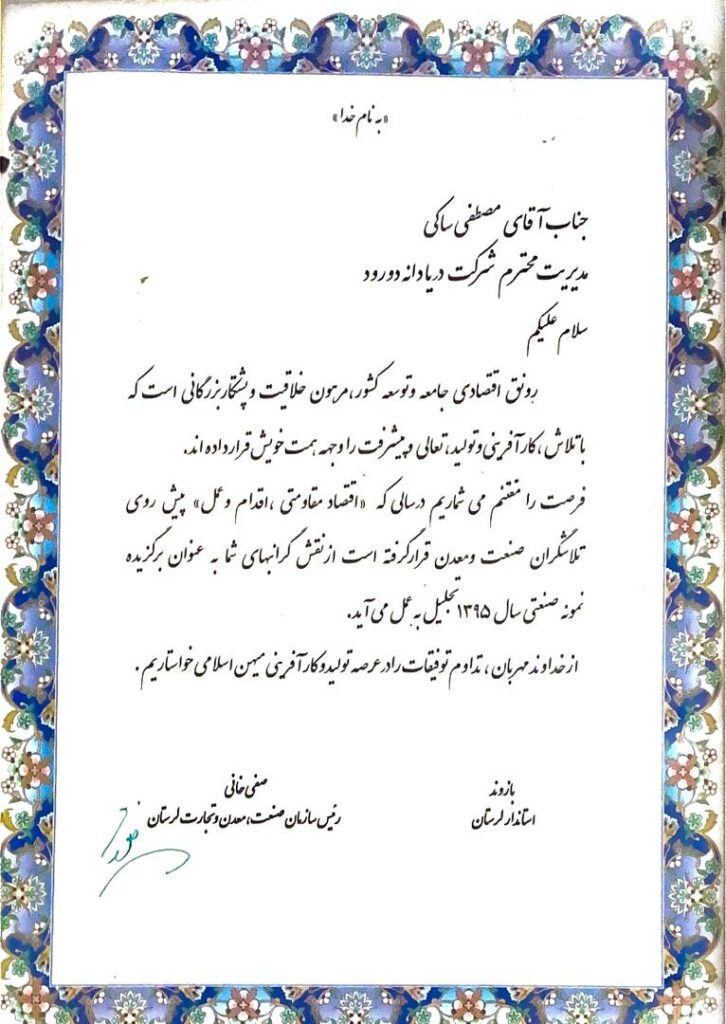 «به نام خدا»
جناب آقای مصطفی ساکی
مدیریت محترم شرکت دریادانه دورود
سلام علیکم
رونق اقتصادی جامعه وتوسعه کشور،مرهون خلاقیت وپشتکاربزرگانی است که
باتلاش،کارآفرینی وتولید،تعالی وپیشرفت را وجهه همت خویش قرارداده اند.
فرصت را مغتنم می شماریم درسالی که «اقتصاد مقاومتی ،اقدام وعمل» پیش روی
تلاشگران صنعت ومعدن قرارگرفته است ازنقش گرانبهای شما به عنوان برگزیده
نمونه صنعتی سال ۱۳۹۵ تجلیل به عمل می آید.
ازخداوند مهربان ،تداوم توفیقات رادرعرصه تولیدوکارآفرینی میهن اسلامی خواستاریم .
بازوند
استاندار لرستان
صفی خانی
رئیس سازمان صنعت،معدن وتجارت لرستان